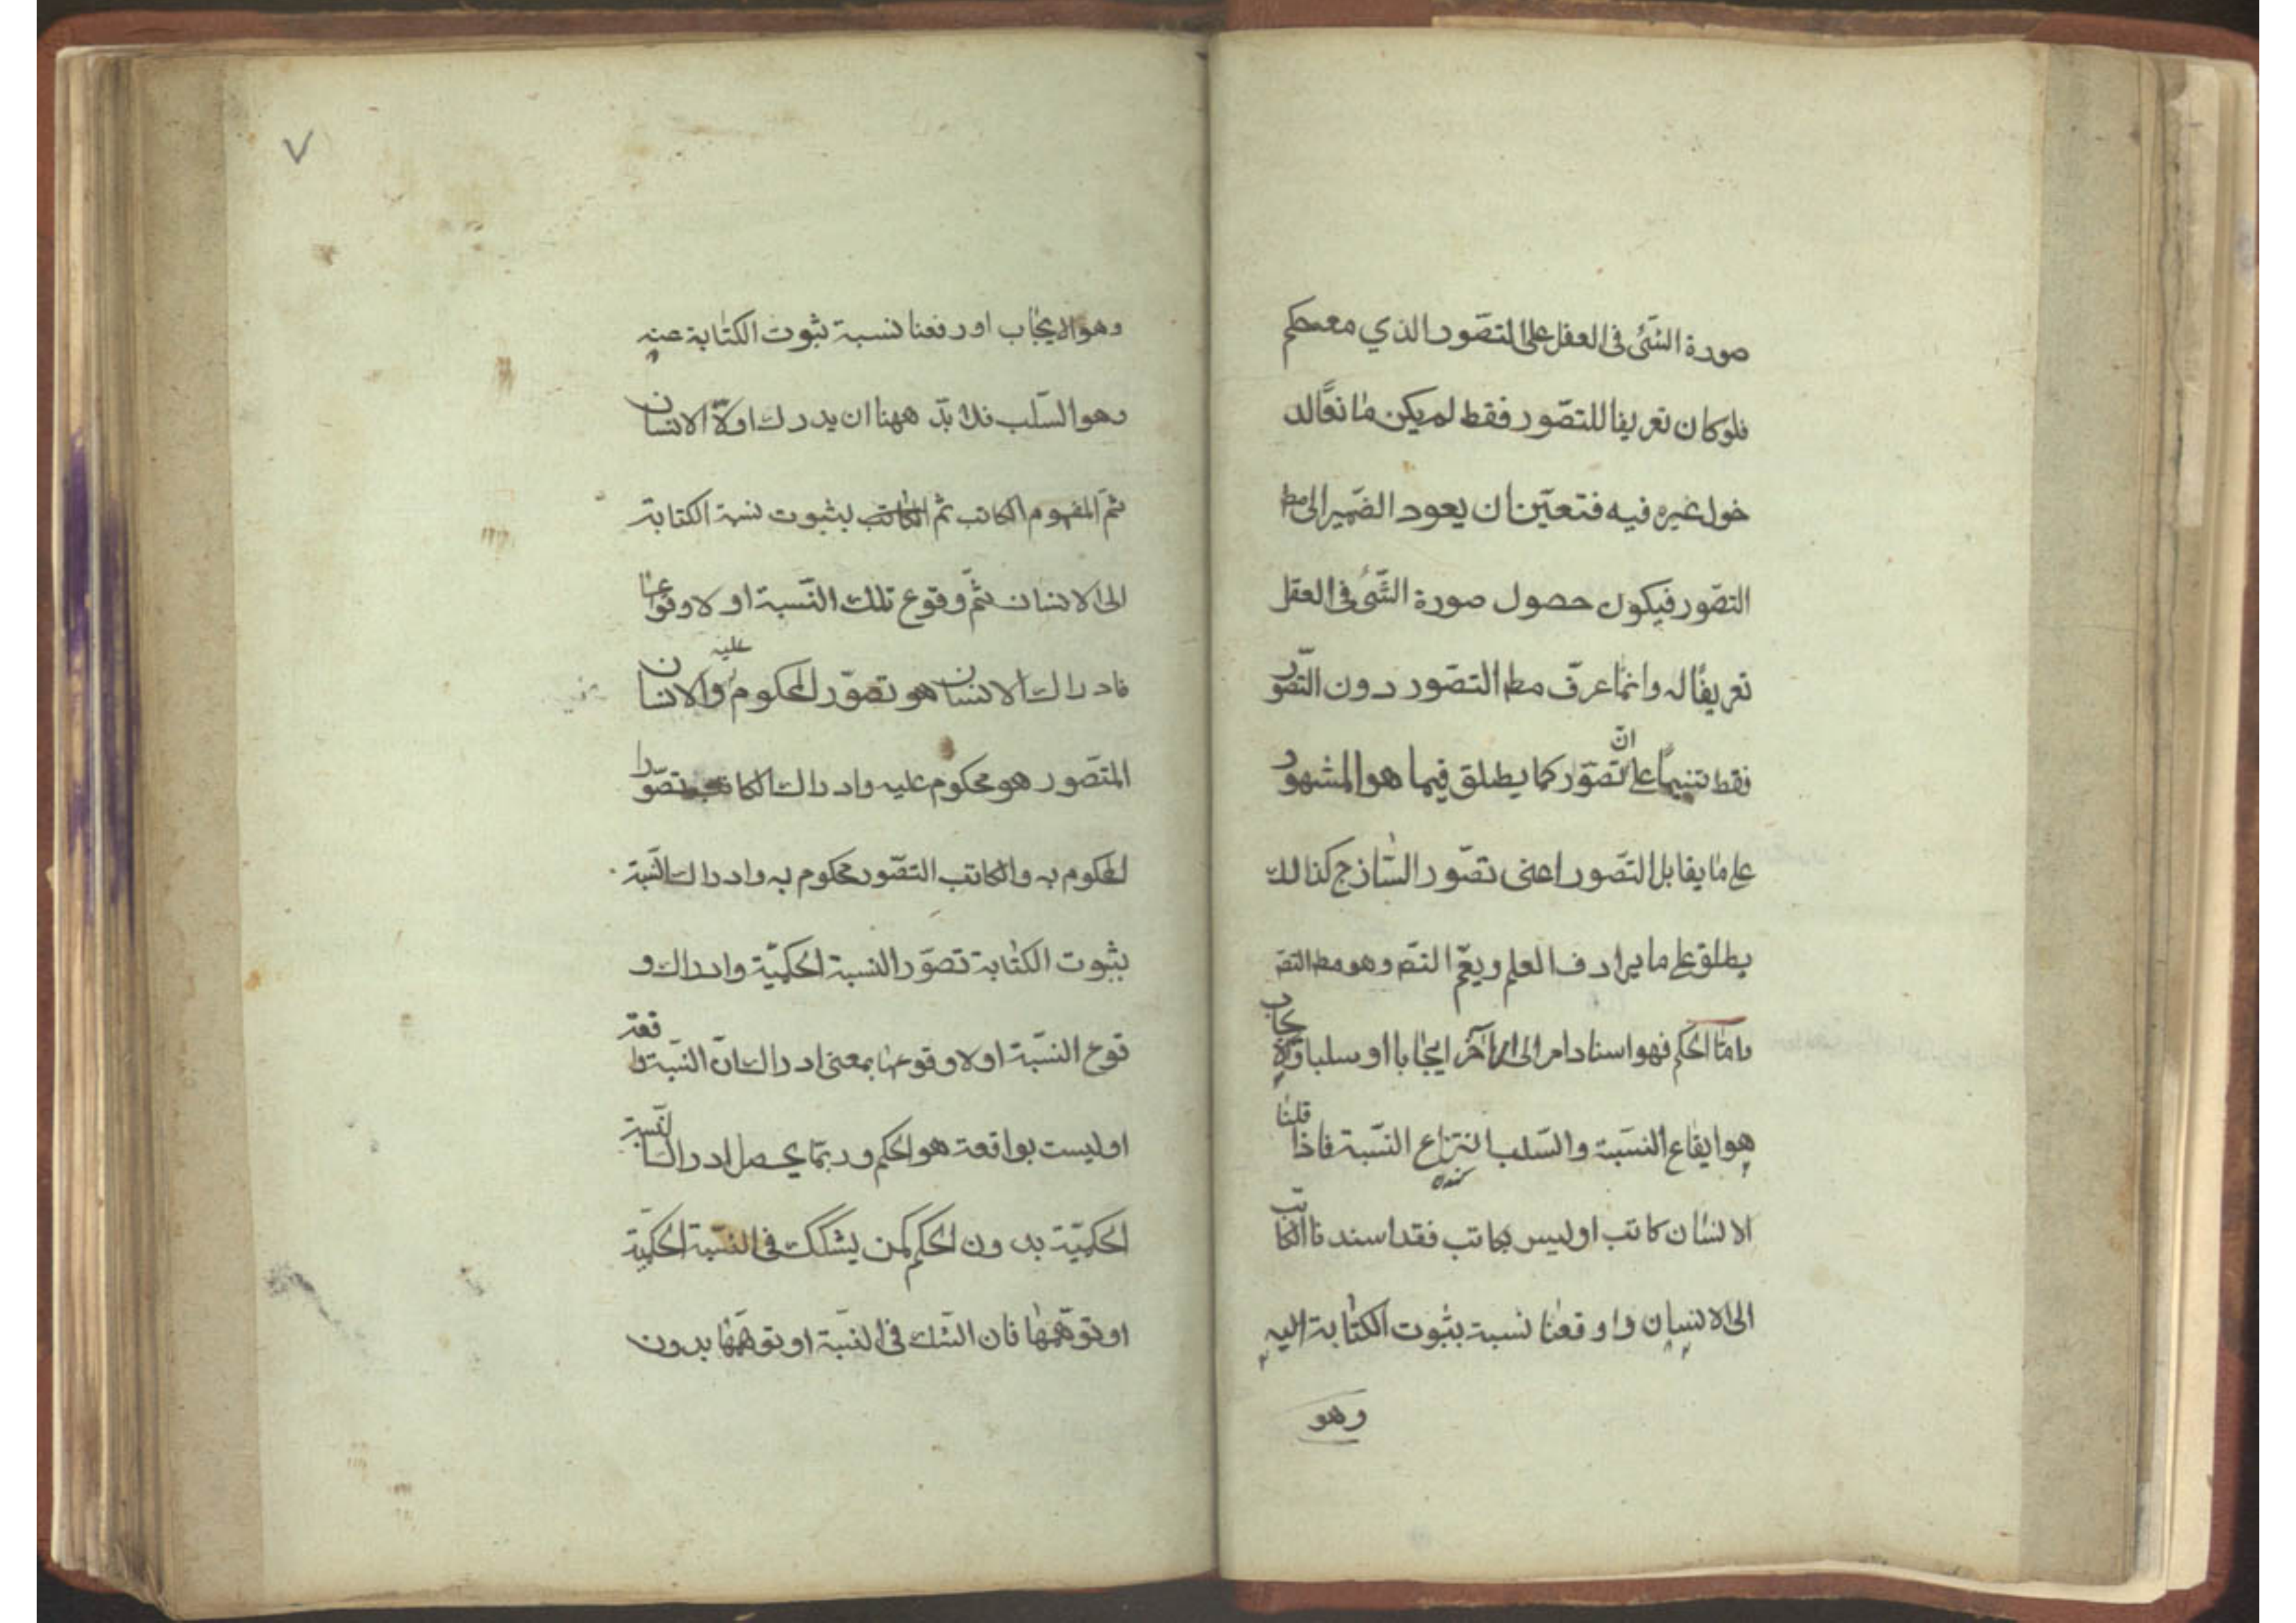 صورة الشّئ فى العقل على التصّور الذي معه حكم
فلو كان تعريفا للتصّور فقط لم يكن مانعًا لد
خول غيره فيه فتعيّن ان يعود الضّمير الى مط
التصّور فيكون حصول صورة الشّئ فى العقل
تعريفًا له وانّما عرّف مط التصّور دون التصّور
فقط تنبيهًا على انّ تصّور كما يطلق فيما هو المشهور
على ما يقابل التصّور اعنى تصّور السّاذج كذالك
يطلق على ما يرادف العلم ويعّم التصّ وهو مط التصّ
وامّا الحكم فهو اسناد امر الى امر آخر ايجابا او سلبا والايجاب
هو ايقاع النسّبة والسّلب انتزاع النسّبة فاذا قلنا
الانسان كاتب او ليس بكاتب فقد اسندنا الكاتب
الى الانسان واوقعنا نسبة بثبوت الكتابة اليه
وهو
٧
وهو الايجاب او رفعنا نسبة ثبوت الكتابة عنه
وهو السّلب فلا بدّ ههنا ان يدرك اولاّ الانسان
ثمّ المفهوم الكاتب ثم الكاتب بثبوت نسبة الكتابة
الى الانسان ثمّ وقوع تلك النّسبة او لا وقوعها
فادراك الانسان هو تصّور المحكوم عليه والانسان
المتصّور هو محكوم عليه وادراك الكاتب تصّور
المحكوم به والكاتب التصّور محكوم به وادراك النسّبة
بثبوت الكتابة تصّور النسبة الحكميّة وادراك و
قوع النسّبة او لا وقوعها بمعنى ادراك انّ النسّبة واقعة
او ليست بواقعة هو الحكم وربمّا يحصل ادراك النسّبة
الحكميّة بدون الحكم كمن يشكك فى النسّبة الحكميّة
او توهّمها فان الشّك فى النسّبة او توهّمها بدون